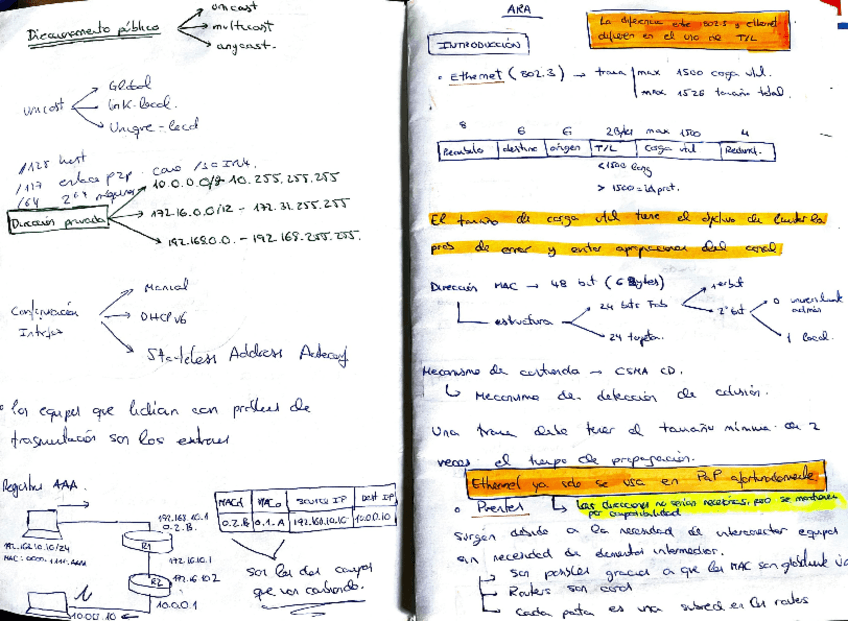 Direccionamiento público
unicast
multicast
anycast.
unicast
Global
link-local.
Unique-local
/128 host
/127 enlace p2p. como /30 IPv4.
/64 2^64 máquinas
Dirección privada
10.0.0.0/8 10.255.255.255
172.16.0.0/12 - 172.31.255.255
192.168.0.0. - 192.168.255.255.
Configuración
Interfaz
Manual
DHCPv6
Stateless Address Autoconf
los equipos que lidian con de
trasmutación son los
Registros AAA.
192.168.10.10/24
MAC:
192.168.10.1
0.2.B.
R1
172.16.10.1
R2
172.16.10.2
10.0.0.1
10.0.0.10
MACd MACo Source IP Dest IP
0.2.B 0.1.A 192.168.10.10 10.0.0.10
son los dos campos
que van cambiando.
ARA
La diferencia entre 802.3 y ethernet
difieren en el uso de T/L
INTRODUCCIÓN
Ethernet (802.3) → trama
max 1500 carga util.
max 1526 tamaño total.
8 6 6 2Bytes max 1500 4
Preámbulo destino origen T/L carga util Redund.
<1500 long
> 1500 = id prot.
El tamaño de carga util tiene el objetivo de limitar la
prob de error y evitar apropiaciones del canal.
Dirección MAC → 48 bit (6 Bytes)
estructura
24 bits Fab
24 tarjeta.
1er bit
2º bit
0
1 local.
Mecanismo de contienda → CSMA CD.
Mecanismo de detección de colisión.
Una trama debe tener el tamaño mínimo de 2
veces el tiempo de propagación.
Ethernet ya solo se usa en P2P afortunadamente
Puentes
Las direcciones no serían necesarias, pero se mantienen
por compatibilidad
Surgen debido a la necesidad de interconectar equipos
sin necesidad de elementos intermedios.
Son posibles gracias a que las MAC son
Routers son caros
Cada puerto es una subred en los routers